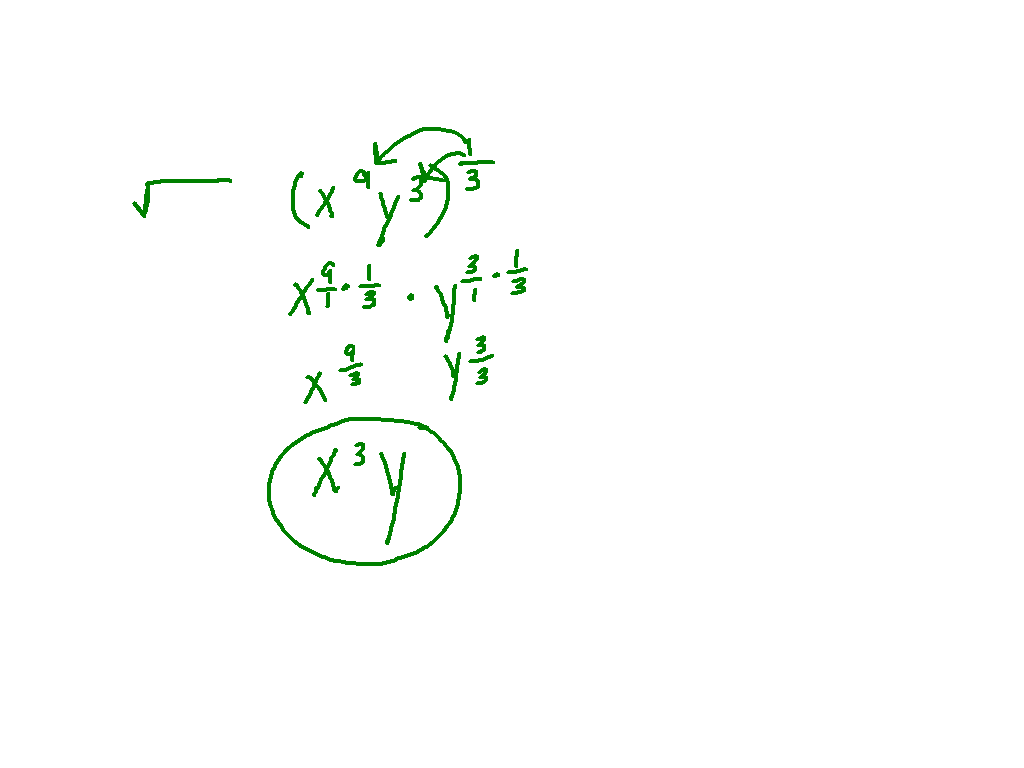 √ (x^9 y^3)^(1/3)
x^(9/1 · 1/3) · y^(3/1 · 1/3)
x^(9/3) y^(3/3)
x^3 y